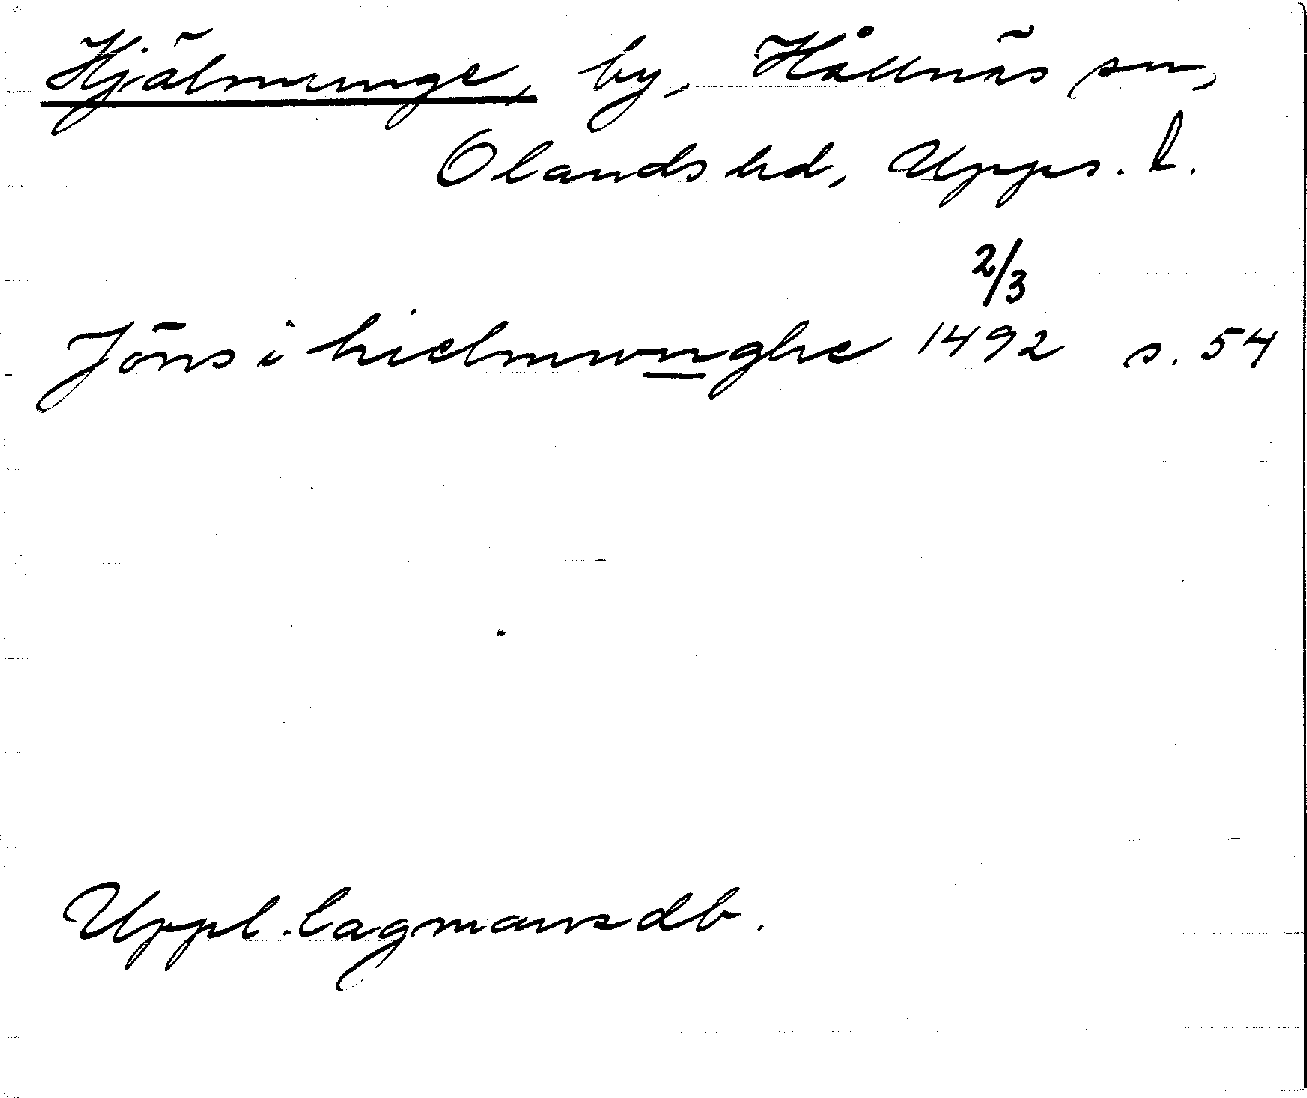 Hjälmunge, by, Hållnäs sn,
Olands hd, Upps. l.
2/3
Jöns i hielmwnghe 1492 s. 54
Uppl. lagmansdb.